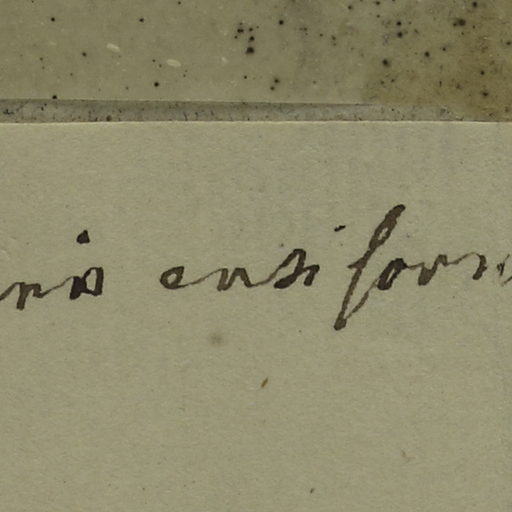 ris ensiform